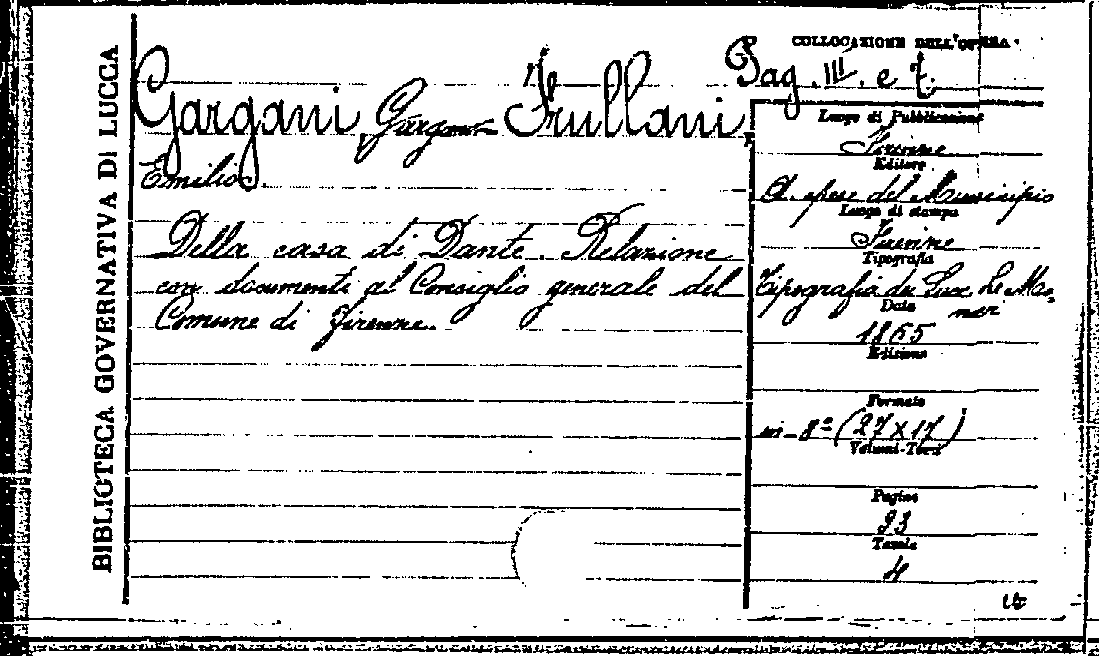 BIBLIOTECA GOVERNATIVA DI LUCCA
COLLOCAZIONE DELL'OPERA
Pag. III. e 7.
Gargani Gargano Frullani,
Emilio.
Della casa di Dante. Relazione
con documenti al Consiglio generale del
Comune di Firenze.
Luogo di Pubblicazione
Firenze
Editore
A spese del Municipio
Luogo di stampa
Firenze
Tipografia
Tipografia dei Succ. Le Mon
nier
Data
1865
Edizione
Formato
in-8º (27x17)
Volumi-Tomi
Pagine
93
Tavole
4